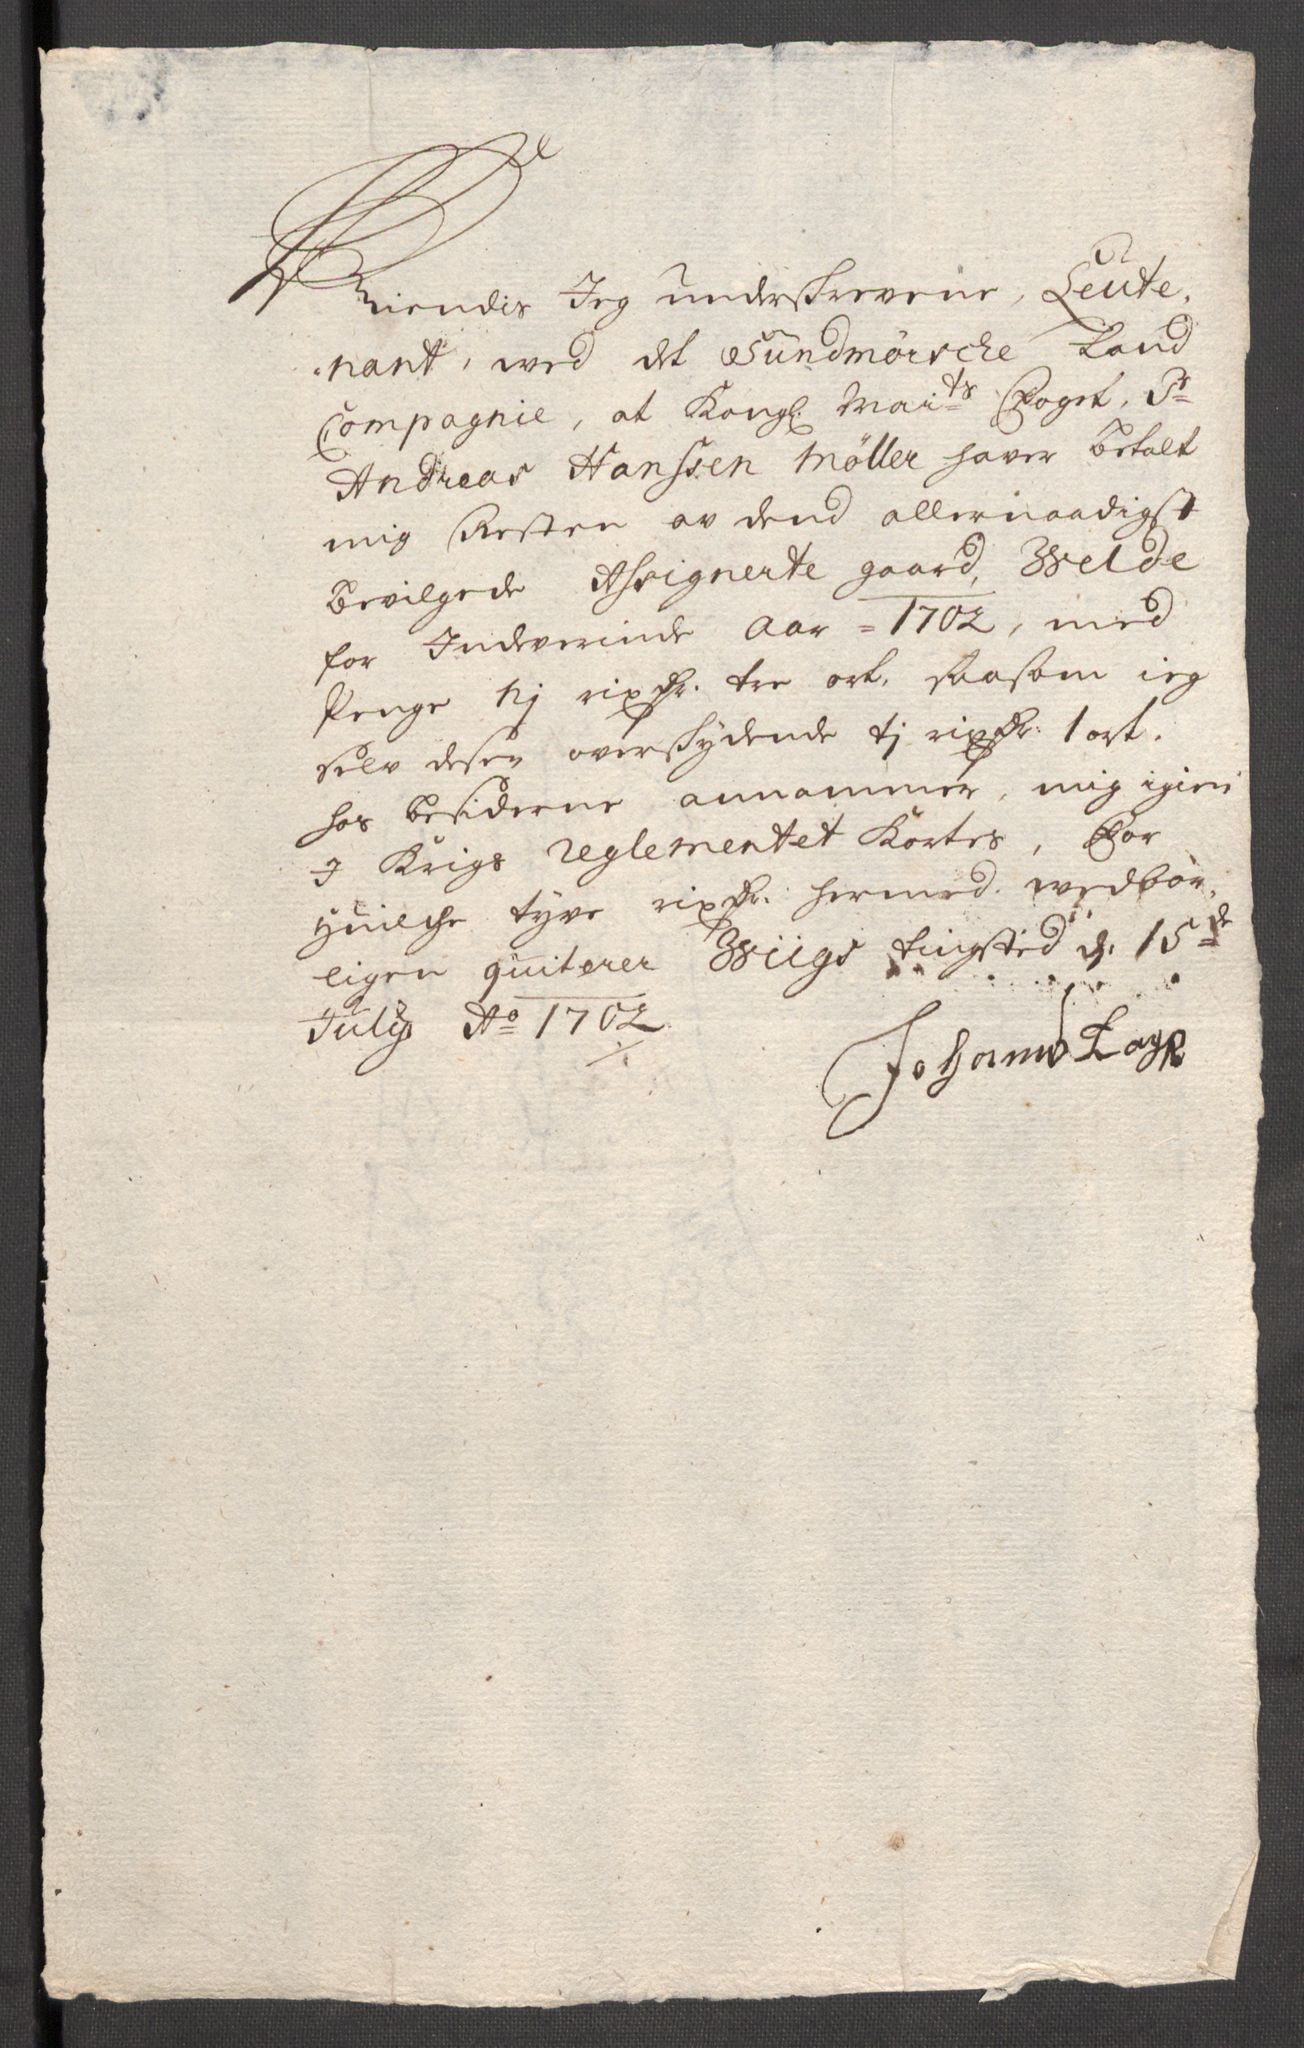 Kiendis Jeg underskrevene, Leute,
nant, wed det Sundmörsche Land
Compagnie, at Kongl. Maits Foget, Sr
Andreas Hanssen Möller haver betalt
mig Resten av dend allernaadigst
bevilgede Assignerte gaard, Welde
for Indeverende Aar = 1702, med
Penge nj rixdr. tre ort, saasom ieg
selv desen overskydende tj rixdr. 1 ort.
hos besiderne annammer, mig igien
I Krigs reglementet Kortes, For
huilche tyve rixdr. hermed wedbör,
ligen quiterer Wiigs tingsted d. 15de
July Ao 1702
Johans